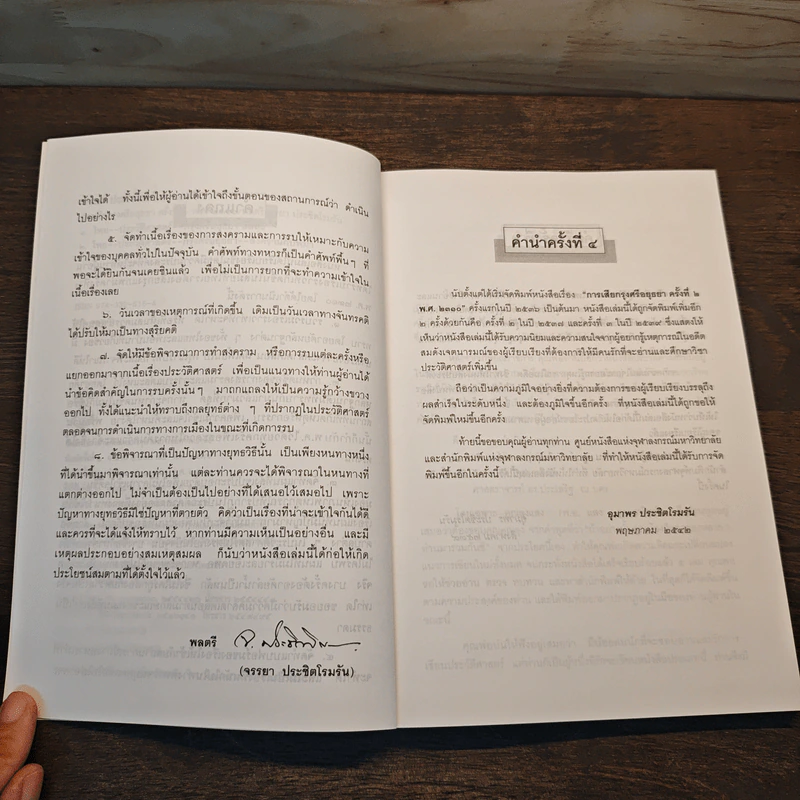 เข้าใจได้ ทั้งนี้เพื่อให้ผู้อ่านได้เข้าใจถึงขั้นตอนของสถานการณ์ว่า ดำเนิน
ไปอย่างไร
๕. จัดทำเนื้อเรื่องของการสงครามและการรบให้เหมาะกับความ
เข้าใจของบุคคลทั่วไปในปัจจุบัน คำศัพท์ทางทหารก็เป็นคำศัพท์พื้นๆ ที่
พอจะได้ยินกันจนเคยชินแล้ว เพื่อไม่เป็นการยากที่จะทำความเข้าใจใน
เนื้อเรื่องเลย
๖. วันเวลาของเหตุการณ์ที่เกิดขึ้น เดิมเป็นวันเวลาทางจันทรคติ
ได้ปรับให้มาเป็นทางสุริยคติ
๗. จัดให้มีข้อพิจารณาการทำสงคราม หรือการรบแต่ละครั้งหรือ
แยกออกมาจากเนื้อเรื่องประวัติศาสตร์ เพื่อเป็นแนวทางให้ท่านผู้อ่านได้
นำข้อคิดสำคัญในการรบครั้งนั้นๆ มาถกแถลงให้เป็นความรู้กว้างขวาง
ออกไป ทั้งได้แนะนำให้ทราบถึงกลยุทธ์ต่าง ๆ ที่ปรากฏในประวัติศาสตร์
ตลอดจนการดำเนินการทางการเมืองในขณะที่เกิดการรบ
๘. ข้อพิจารณาที่เป็นปัญหาทางยุทธวิธีนั้น เป็นเพียงหนทางหนึ่ง
ที่ได้นำขึ้นมาพิจารณาเท่านั้น แต่ละท่านควรจะได้พิจารณาในหนทางที่
แตกต่างออกไป ไม่จำเป็นต้องเป็นไปอย่างที่ได้เสนอไว้เสมอไป เพราะ
ปัญหาทางยุทธวิธีมิใช่ปัญหาที่ตายตัว คิดว่าเป็นเรื่องที่น่าจะเข้าใจกันได้ดี
และควรที่จะได้แจ้งให้ทราบไว้ หากท่านมีความเห็นเป็นอย่างอื่น และมี
เหตุผลประกอบอย่างสมเหตุสมผล ก็นับว่าหนังสือเล่มนี้ได้ก่อให้เกิด
ประโยชน์สมตามที่ได้ตั้งใจไว้แล้ว
พลตรี
(จรรยา ประชิตโรมรัน)
คำนำครั้งที่ ๔
นับตั้งแต่ได้เริ่มจัดพิมพ์หนังสือเรื่อง "การเสียกรุงศรีอยุธยา ครั้งที่ ๒
พ.ศ. ๒๓๑๐" ครั้งแรกในปี ๒๕๓๖ เป็นต้นมา หนังสือเล่มนี้ได้ถูกจัดพิมพ์เพิ่มอีก
๒ ครั้งด้วยกันคือ ครั้งที่ ๒ ในปี ๒๕๓๗ และครั้งที่ ๓ ในปี ๒๕๓๙ ซึ่งแสดงให้
เห็นว่าหนังสือเล่มนี้ได้รับความนิยมและความสนใจจากผู้อยากรู้เหตุการณ์ในอดีต
สมดังเจตนารมณ์ของผู้เรียบเรียงที่ต้องการให้มีคนรักที่จะอ่านและศึกษาวิชา
ประวัติศาสตร์เพิ่มขึ้น
ถือว่าเป็นความภูมิใจอย่างยิ่งที่ความต้องการของผู้เรียบเรียงบรรลุถึง
ผลสำเร็จในระดับหนึ่ง และต้องภูมิใจขึ้นอีกครั้ง ที่หนังสือเล่มนี้ได้ถูกขอให้
จัดพิมพ์ใหม่ขึ้นอีกครั้ง
ท้ายนี้ขอขอบคุณผู้อ่านทุกท่าน ศูนย์หนังสือแห่งจุฬาลงกรณ์มหาวิทยาลัย
และสำนักพิมพ์แห่งจุฬาลงกรณ์มหาวิทยาลัย ที่ทำให้หนังสือเล่มนี้ได้รับการจัด
พิมพ์ขึ้นอีกในครั้งนี้
อุมาพร ประชิตโรมรัน
พฤษภาคม ๒๕๔๒